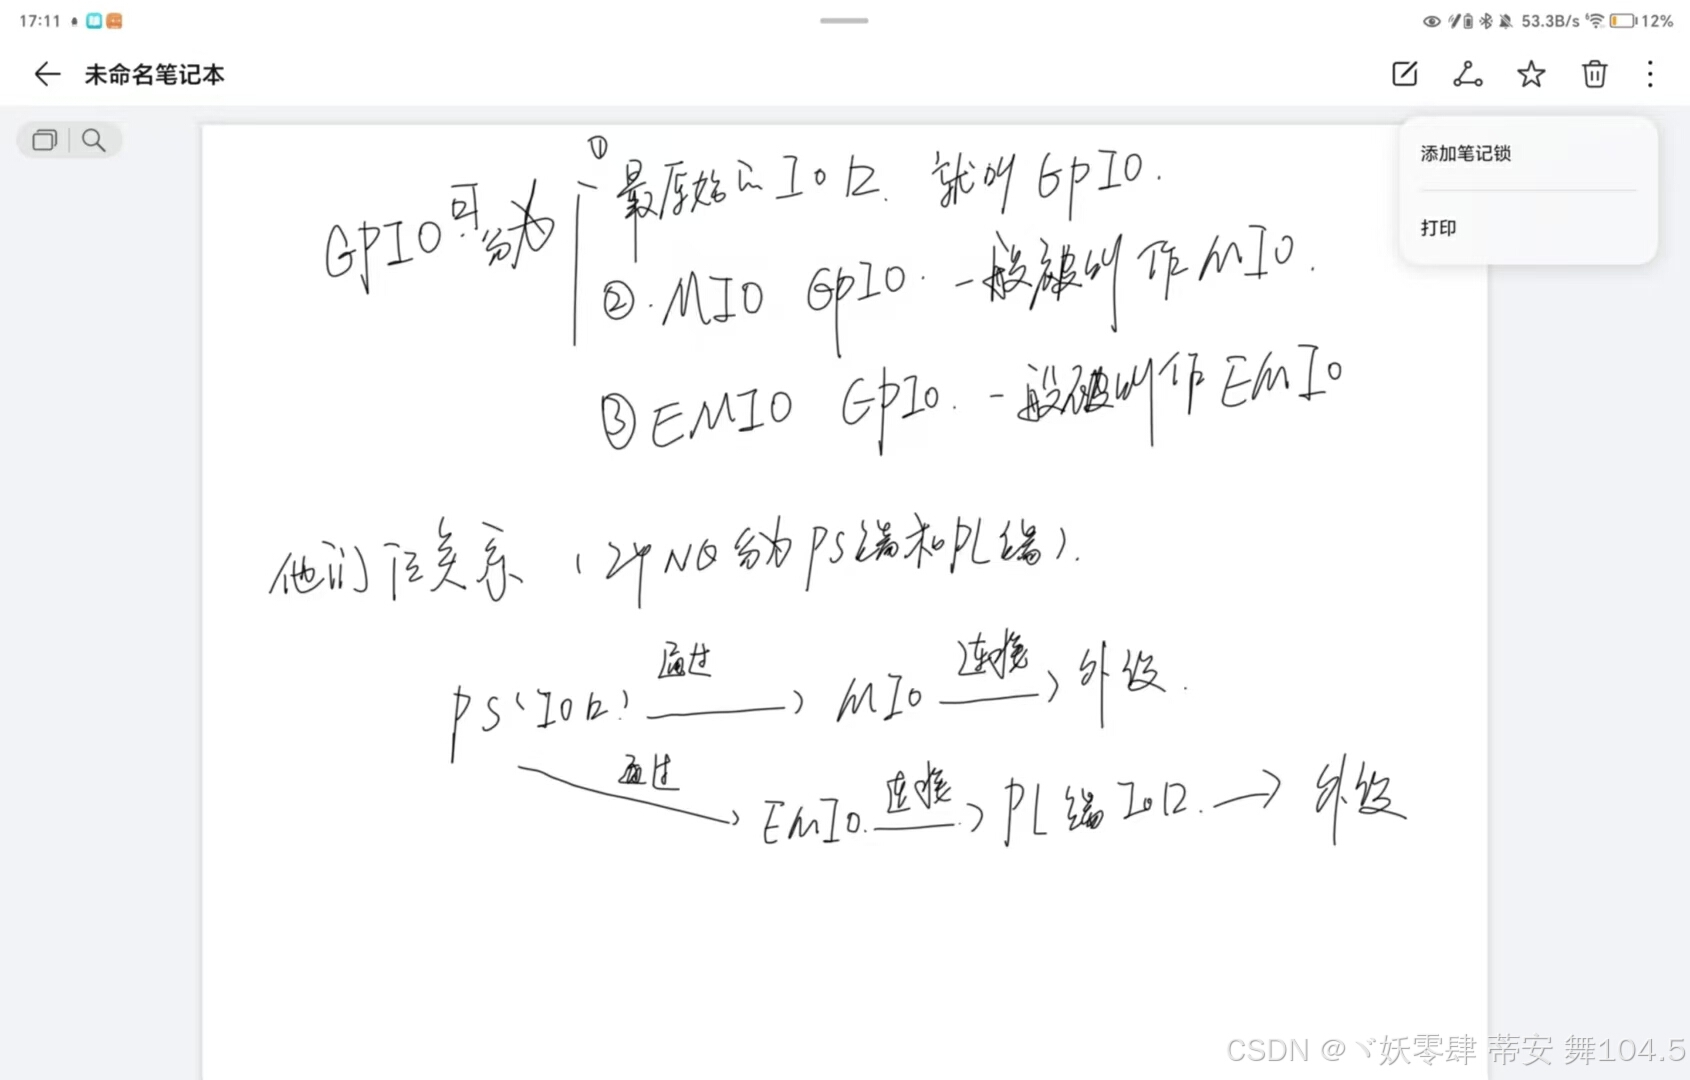 17:11 53.3B/s 12%
未命名笔记本
添加笔记锁
打印
GPIO可分为
① 最原始的IO口. 就叫GPIO.
②. MIO GPIO. 一般被叫作MIO.
③ EMIO GPIO. 一般被叫作EMIO
他们的关系 (ZYNQ分为PS端和PL端).
PS(IO口) 通过 MIO 连接 外设.
通过 EMIO. 连接 PL端IO口. 外设
CSDN @ヾ妖零肆 蒂安 舞104.5